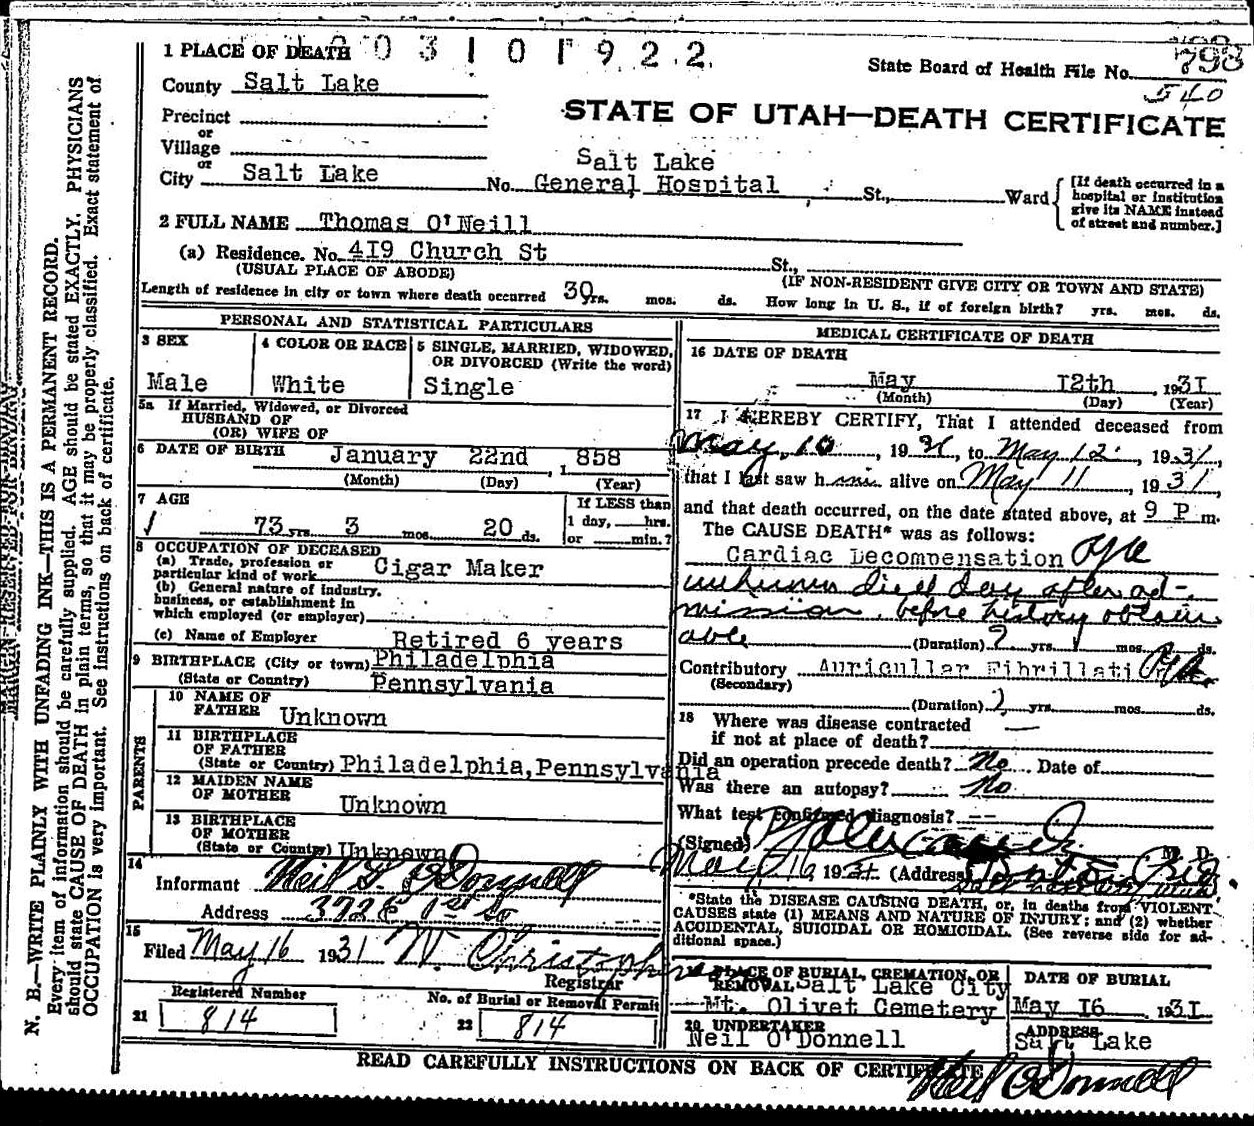 1 PLACE OF DEATH
0 3 1 0 1 9 2 2
State Board of Health File No. 793
540
County Salt Lake
STATE OF UTAH—DEATH CERTIFICATE
Precinct
or
Village
or
City Salt Lake No. Salt Lake General Hospital St., Ward
[If death occurred in a hospital or institution give its NAME instead of street and number.]
2 FULL NAME Thomas O'Neill
(a) Residence. No. 4I9 Church St St.,
(USUAL PLACE OF ABODE) (IF NON-RESIDENT GIVE CITY OR TOWN AND STATE)
Length of residence in city or town where death occurred 30 yrs. mos. ds. How long in U. S., if of foreign birth? yrs. mos. ds.
PERSONAL AND STATISTICAL PARTICULARS
3 SEX
Male
4 COLOR OR RACE
White
5 SINGLE, MARRIED, WIDOWED, OR DIVORCED (Write the word)
Single
5a If Married, Widowed, or Divorced
HUSBAND OF
(OR) WIFE OF
6 DATE OF BIRTH January 22nd, 1858
(Month) (Day) (Year)
7 AGE
73 yrs. 3 mos. 20 ds.
If LESS than
1 day, hrs.
or min.?
8 OCCUPATION OF DECEASED
(a) Trade, profession or
particular kind of work Cigar Maker
(b) General nature of industry,
business, or establishment in
which employed (or employer)
(c) Name of Employer Retired 6 years
9 BIRTHPLACE (City or town) Philadelphia
(State or Country) Pennsylvania
PARENTS
10 NAME OF
FATHER Unknown
11 BIRTHPLACE
OF FATHER
(State or Country) Philadelphia, Pennsylvania
12 MAIDEN NAME
OF MOTHER Unknown
13 BIRTHPLACE
OF MOTHER
(State or Country) Unknown
14
Informant Neil O'Donnell
Address 372 E 1st So
15
Filed May 16 1931 W. Christopherson
Registrar
Registered Number
21 814
No. of Burial or Removal Permit
22 814
MEDICAL CERTIFICATE OF DEATH
16 DATE OF DEATH
May I2th, 193I
(Month) (Day) (Year)
17 I HEREBY CERTIFY, That I attended deceased from
May 10, 1931, to May 12, 1931,
that I last saw him alive on May 11, 1931,
and that death occurred, on the date stated above, at 9 P m.
The CAUSE DEATH* was as follows:
Cardiac Decompensation
unknown died day after ad-
mission, before history obtain
able
(Duration) ? yrs. mos. ds.
Contributory Auricullar Fibrillati
(Secondary)
(Duration) ? yrs. mos. ds.
18 Where was disease contracted
if not at place of death? —
Did an operation precede death? No Date of
Was there an autopsy? No
What test confirmed diagnosis? --
(Signed) M. D.
May 16 1931 (Address)
*State the DISEASE CAUSING DEATH, or, in deaths from VIOLENT
CAUSES state (1) MEANS AND NATURE OF INJURY; and (2) whether
ACCIDENTAL, SUICIDAL OR HOMICIDAL. (See reverse side for ad-
ditional space.)
PLACE OF BURIAL, CREMATION, OR
REMOVAL Salt Lake City
Mt. Olivet Cemetery
DATE OF BURIAL
May I6 193I
20 UNDERTAKER
Neil O'Donnell
ADDRESS
Salt Lake
Neil O'Donnell
READ CAREFULLY INSTRUCTIONS ON BACK OF CERTIFICATE
N. B.—WRITE PLAINLY WITH UNFADING INK—THIS IS A PERMANENT RECORD.
Every item of information should be carefully supplied. AGE should be stated EXACTLY. PHYSICIANS
should state CAUSE OF DEATH in plain terms, so that it may be properly classified. Exact statement of
OCCUPATION is very important. See instructions on back of certificate.
MARGIN RESERVED FOR BINDING